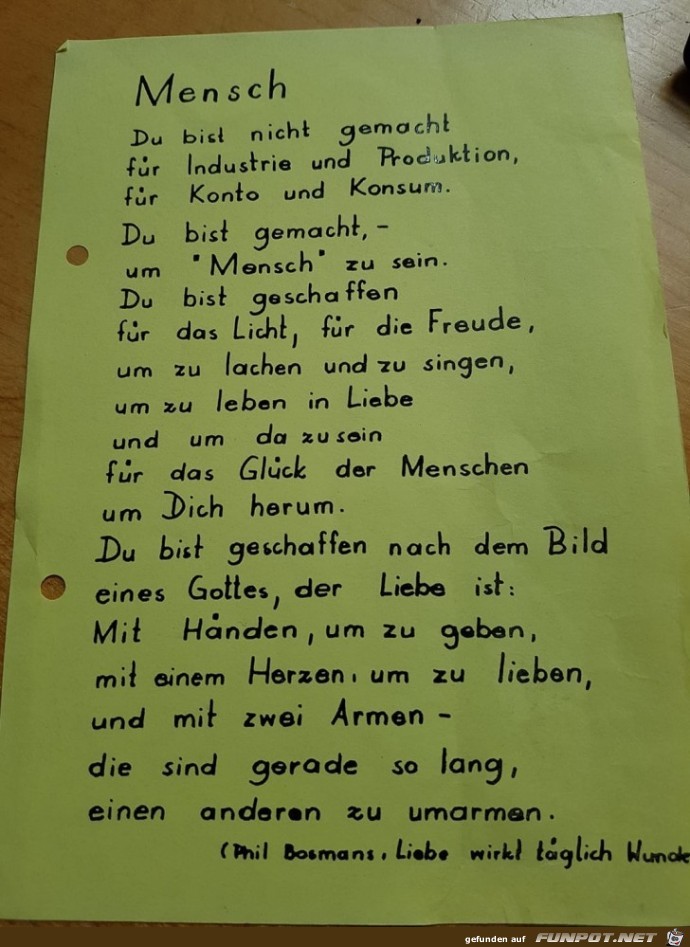 Mensch
Du bist nicht gemacht
für Industrie und Produktion,
für Konto und Konsum.
Du bist gemacht,-
um "Mensch" zu sein.
Du bist geschaffen
für das Licht, für die Freude,
um zu lachen und zu singen,
um zu leben in Liebe
und um da zu sein
für das Glück der Menschen
um Dich herum.
Du bist geschaffen nach dem Bild
eines Gottes, der Liebe ist:
Mit Händen, um zu geben,
mit einem Herzen, um zu lieben,
und mit zwei Armen -
die sind gerade so lang,
einen anderen zu umarmen.
(Phil Bosmans, Liebe wirkt täglich Wunde
gefunden auf FUNPOT.NET